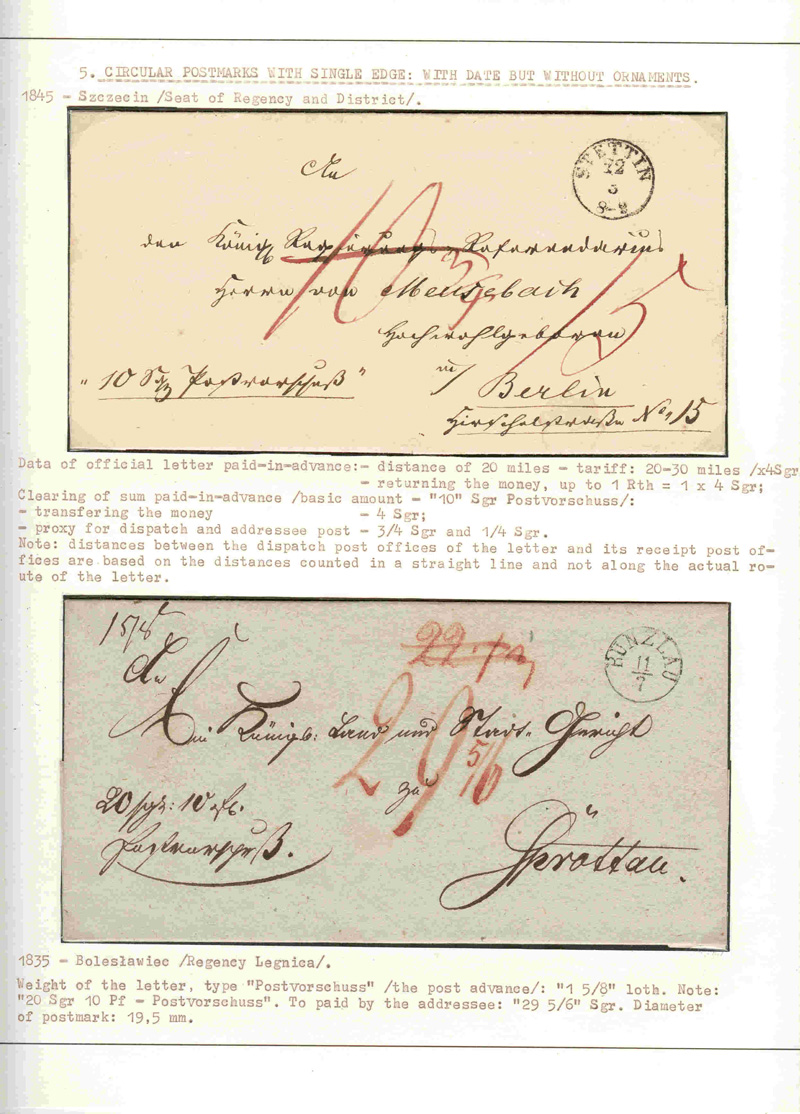 5. CIRCULAR POSTMARKS WITH SINGLE EDGE: WITH DATE BUT WITHOUT ORNAMENTS.
1845 - Szczecin /Seat of Regency and District/.
STETTIN
22
3
8-9
An
den Königl Regierungs-Referendarius
Herrn von Meusebach
Hochwohlgeboren
"10 Sgr Postvorschuß"
Berlin
Hirschelstraße No. 15
10
15
Data of official letter paid-in-advance:- distance of 20 miles - tariff: 20-30 miles /x4Sgr
- returning the money, up to 1 Rth = 1 x 4 Sgr;
Clearing of sum paid-in-advance /basic amount - "10" Sgr Postvorschuss/:
- transfering the money - 4 Sgr;
- proxy for dispatch and addressee post - 3/4 Sgr and 1/4 Sgr.
Note: distances between the dispatch post offices of the letter and its receipt post of-
fices are based on the distances counted in a straight line and not along the actual ro-
ute of the letter.
1 5/8
22
BUNZLAU
11
7
An
Ein Königl: Land und Stadt-Gericht
29 5/6
zu
20 sgr: 10 Pf.
Postvorschuß.
Sprottau.
1835 - Bolesławiec /Regency Legnica/.
Weight of the letter, type "Postvorschuss" /the post advance/: "1 5/8" loth. Note:
"20 Sgr 10 Pf - Postvorschuss". To paid by the addressee: "29 5/6" Sgr. Diameter
of postmark: 19,5 mm.